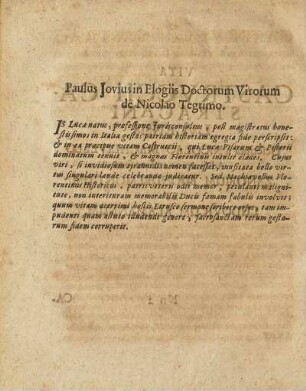 Paulus Jovius in Elogiis Doctorum Virorum
de Nicolao Tegrimo.
IS Lucæ natus, professione Jureconsultus, post magistratus hone-
stissimos in Italia gestos patriam historiam egregia fide perscripsit:
& in ea præcipue vitam Castruccii, qui Lucæ Pisarum & Pistorii
dominatum tenuit, & magnas Florentinis intulit clades. Cujus
viri, si invidiosum tyranni nomen facesset, invictata bello virtus
singulari laude celebranda judicatur. Sed, Machiavellus Flo-
rentinus Historicus, patrii veteris odii memor, petulanti maligni-
tate, non interituram memorabilis Ducis famam fabulis involvit;
quum vitam acerrimi hostis Etrusco sermone scribere orsus, tam im-
pudenti quam astuto illudendi genere, sacrosanctam rerum gesto-
rum fidem corruperit.
CA-